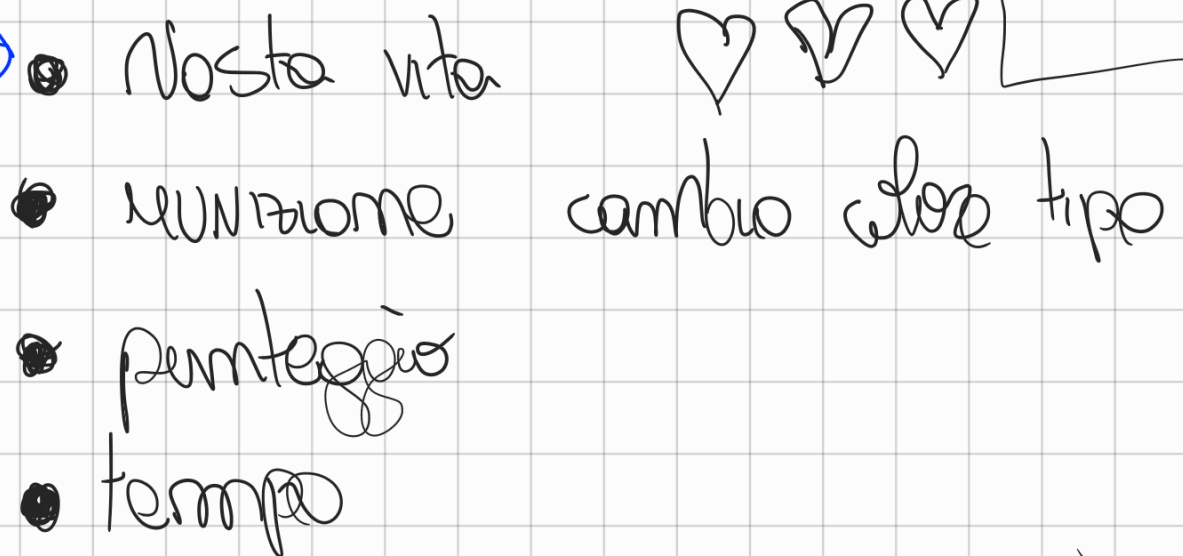 Nosta vita
munizione cambio
tipo
punteggio
tempo